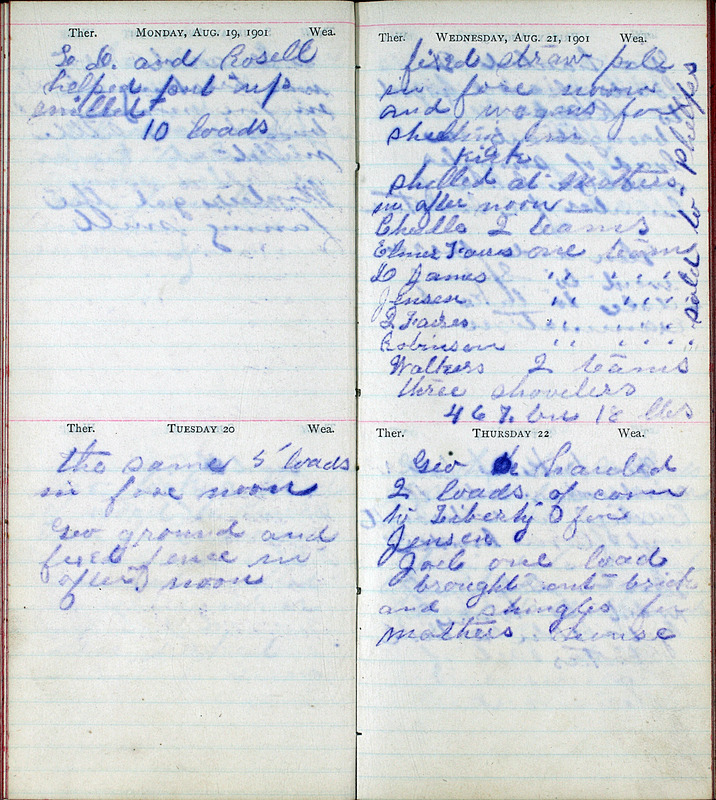 Ther. MONDAY, AUG. 19, 1901 Wea.
and Rosell
helped put up
millet
10 loads
Ther. TUESDAY 20 Wea.
the same 5 loads
in fore noon
Geo ground and
fixed fence in
after noon
Ther. WEDNESDAY, AUG. 21, 1901 Wea.
fixed straw pile
in fore noon
and wagons for
shelling
shelled at mothers
in after noon
2 teams
Elmer Fares one team
James " " "
Jensen " " "
2 Faires " " "
Robinson " " "
Walkers 2 teams
three shovelers
467 bu 18 lbs
sold to Phelps
Ther. THURSDAY 22 Wea.
Geo hauled
2 loads of corn
to Liberty for
Jensen
Joel one load
brought out brick
and shingles for
mothers house